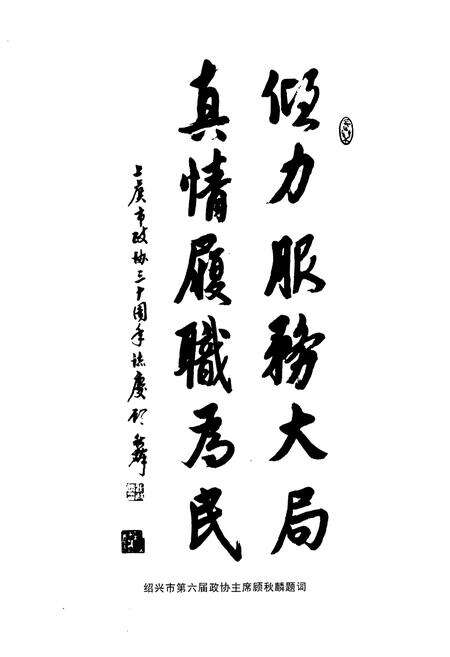 倾力服務大局
真情履職為民
上虞市政协三十周年誌慶 顾秋麟
绍兴市第六届政协主席顾秋麟题词